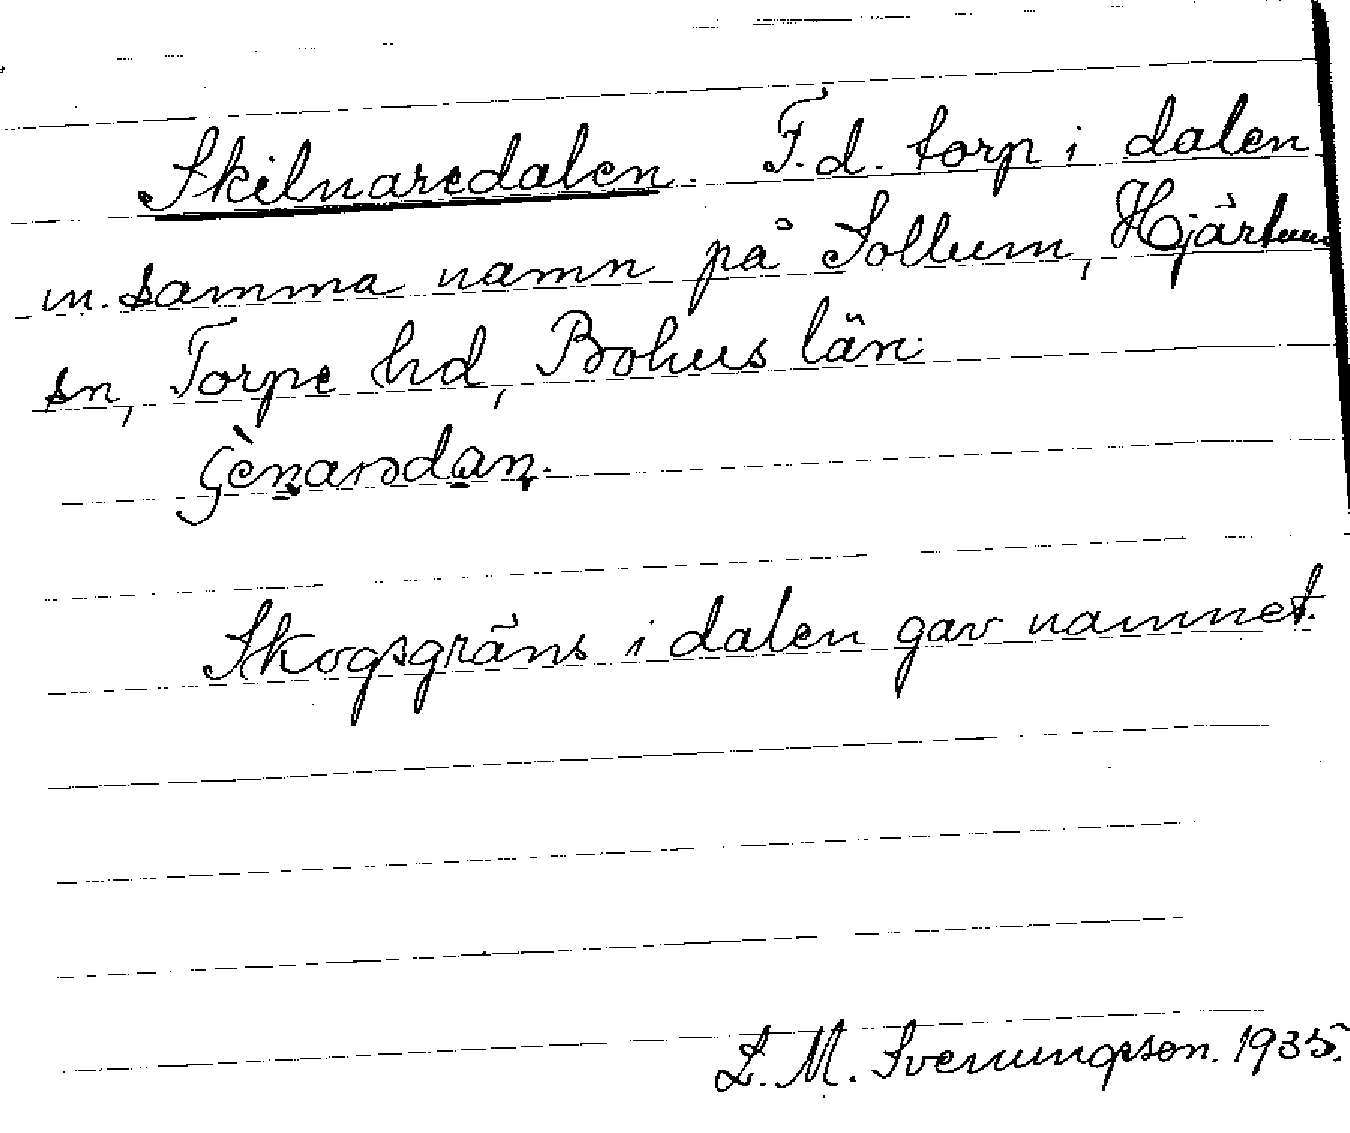 Skilnaredalen. F.d. torp i dalen
m. samma namn på Sollum, Hjärtums
sn, Torpe hd, Bohus län.
Skogsgräns i dalen gav namnet.
L. M. Svenungsson. 1935.